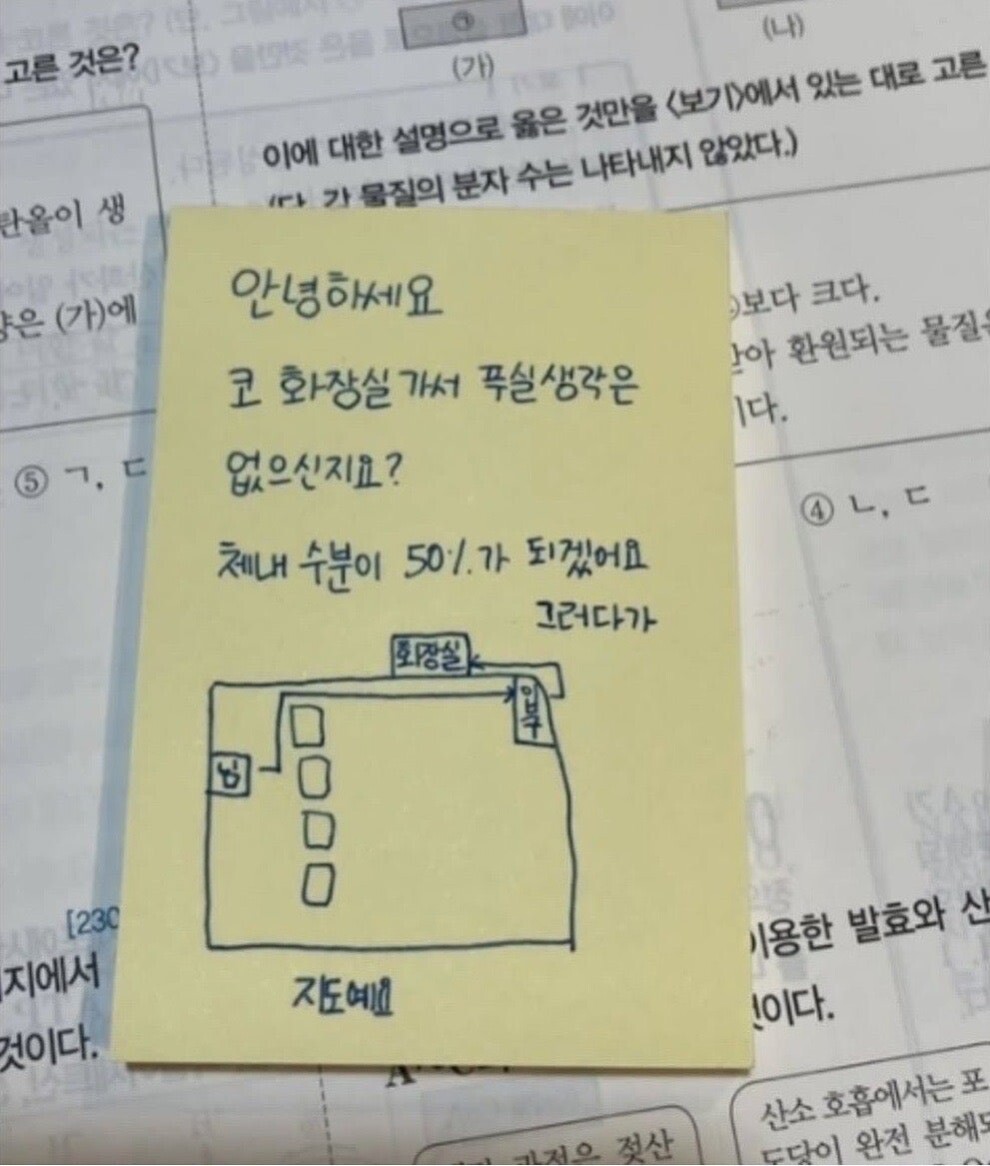 고른 것은?
㉠
(가)
(나)
이에 대한 설명으로 옳은 것만을 <보기>에서 있는 대로 고른
(단, 각 물질의 분자 수는 나타내지 않았다.)
탄올이 생
양은 (가)에
⑤ ㄱ, ㄷ
보다 크다.
환원되는 물질은
이다.
④ ㄴ, ㄷ
안녕하세요
코 화장실가서 푸실생각은
없으신지요?
체내 수분이 50%가 되겠어요
그러다가
화장실
입구
님
지도예요
[230
지에서
것이다.
이용한 발효와 산
것이다.
과정은 젖산
산소 호흡에서는 포
도당이 완전 분해되